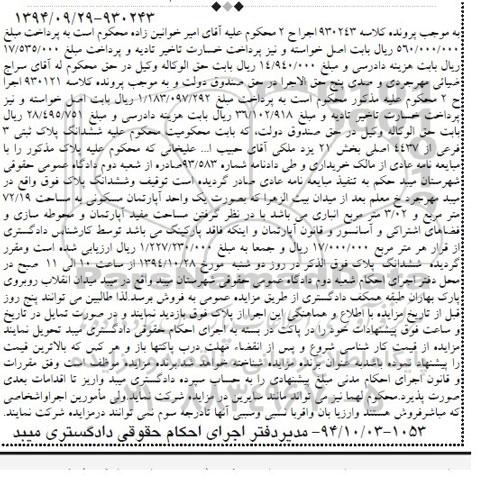 ۱۳۹۴/۰۹/۲۹-۹۳۰۲۴۳
به موجب پرونده کلاسه ۹۳۰۲۴۳ اجرا ح ۲ محکوم علیه آقای امیر خوانین زاده محکوم است به پرداخت مبلغ
۵۶۰/۰۰۰/۰۰۰ ریال بابت اصل خواسته و نیز پرداخت خسارت تاخیر تادیه و پرداخت مبلغ ۱۷/۵۳۵/۰۰۰
ریال بابت هزینه دادرسی و مبلغ ۱۴/۹۴۰/۰۰۰ ریال بابت حق الوکاله وکیل در حق محکوم له آقای سراج
ضیائی مهرجردی و صدی پنج حق الاجرا در حق صندوق دولت و به موجب پرونده کلاسه ۹۳۰۱۲۱ اجرای
ح ۲ محکوم علیه مذکور محکوم است به پرداخت مبلغ ۱/۱۸۳/۰۹۷/۲۹۲ ریال بابت اصل خواسته و نیز
پرداخت خسارت تاخیر تادیه و مبلغ ۳۶/۱۰۲/۹۱۸ ریال بابت هزینه دادرسی و مبلغ ۲۸/۴۹۵/۷۵۱ ریال
بابت حق الوکاله وکیل در حق صندوق دولت، که بابت محکومیت محکوم علیه ششدانگ پلاک ثبتی ۳
فرعی از ۴۴۳۷ اصلی بخش ۲۱ یزد ملکی آقای حبیب ا... علیخانی که محکوم علیه پلاک مذکور را با
مبایعه نامه عادی از مالک خریداری و طی دادنامه شماره ۹۳/۵۸۳صادره از شعبه دوم دادگاه عمومی حقوقی
شهرستان میبد حکم به تنفیذ مبایعه نامه عادی صادر گردیده است توقیف وششدانگ پلاک فوق واقع در
میبد مهرجرد خ معلم بعد از میدان بیت الزهرا که بصورت یک واحد آپارتمان مسکونی به مساحت ۷۲/۱۹
متر مربع و ۳/۰۲ متر مربع انباری می باشد با در نظر گرفتن مساحت مفید آپارتمان و محوطه سازی و
فضاهای اشتراکی و آسانسور و قانون آپارتمان و اینکه فاقد پارکینگ می باشد توسط کارشناس دادگستری
از قرار هر متر مربع ۱۷/۰۰۰/۰۰۰ ریال و جمعا به مبلغ ۱/۲۲۷/۲۳۰/۰۰۰ ریال ارزیابی شده است ومقرر
گردیده ششدانگ پلاک فوق الذکر در روز دو شنبه مورخ ۱۳۹۴/۱۰/۲۸ از ساعت ۱۰ الی ۱۱ صبح در
محل دفتر اجرای احکام شعبه دوم دادگاه عمومی حقوقی شهرستان میبد واقع در میبد میدان انقلاب روبروی
پارک بهاران طبقه همکف دادگستری از طریق مزایده عمومی به فروش برسد.لذا طالبین می توانند پنج روز
قبل از تاریخ مزایده با اطلاع و هماهنگی این اجرا از پلاک فوق بازدید نمایند و در صورت تمایل در تاریخ
و ساعت فوق پیشنهادات خود را در پاکت در بسته به اجرای احکام حقوقی دادگستری میبد تحویل نمایند
مزایده از قیمت کار شناسی شروع و پس از انقضاء مهلت درب پاکتها باز و هر کس که بالاترین قیمت
را پیشنهاد نموده باشدبه عنوان برنده مزایده شناخته خواهد شد.برنده مزایده موظف است وفق مقررات
و قانون اجرای احکام مدنی مبلغ پیشنهادی را به حساب سپرده دادگستری میبد واریز تا اقدامات بعدی
صورت پذیرد.محکوم لهما نیز می توانند مانند سایرین در مزایده شرکت نماید.ولی مأمورین اجراواشخاصی
که مباشرفروش هستند وارزیاب واقربا نسبی وسببی آنها تادرجه سوم نمی توانند درمزایده شرکت نمایند.
۹۴/۱۰/۰۳-۱۰۵۳- مدیردفتر اجرای احکام حقوقی دادگستری میبد